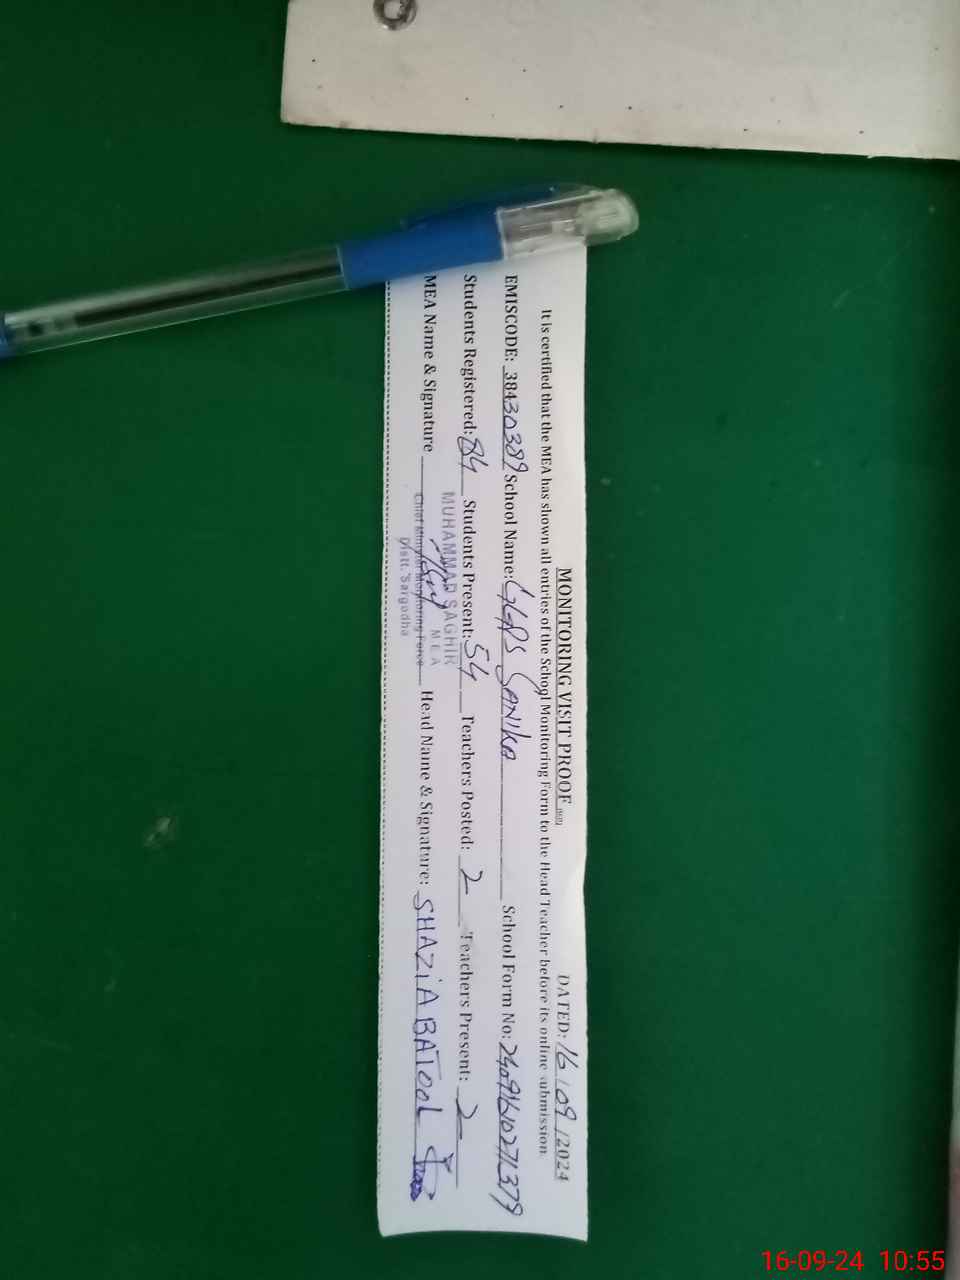 MONITORING VISIT PROOF DATED: 16/09/2024
It is certified that the MEA has shown all entries of the School Monitoring Form to the Head Teacher before its online submission.
EMISCODE: 38430389 School Name: GGPS SANIKA School Form No:
Students Registered: 84 Students Present: 54 Teachers Posted: 2 Teachers Present: 2
MEA Name & Signature Head Name & Signature: SHAZiA BATOOL
MUHAMMAD SAGHIR
MEA
Chief Minister Monitoring Force
Distt. Sargodha
16-09-24 10:55